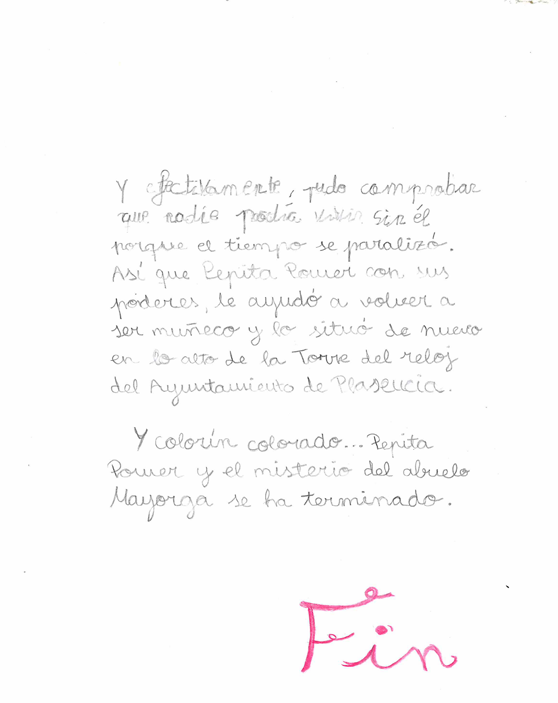 Y efectivamente, pudo comprobar
que nadie podía vivir sin él
porque el tiempo se paralizó.
Así que Pepita Power con sus
poderes, le ayudó a volver a
ser muñeco y lo situó de nuevo
en lo alto de la Torre del reloj
del Ayuntamiento de Plasencia.
Y colorín colorado... Pepita
Power y el misterio del abuelo
Mayorga se ha terminado.
Fin